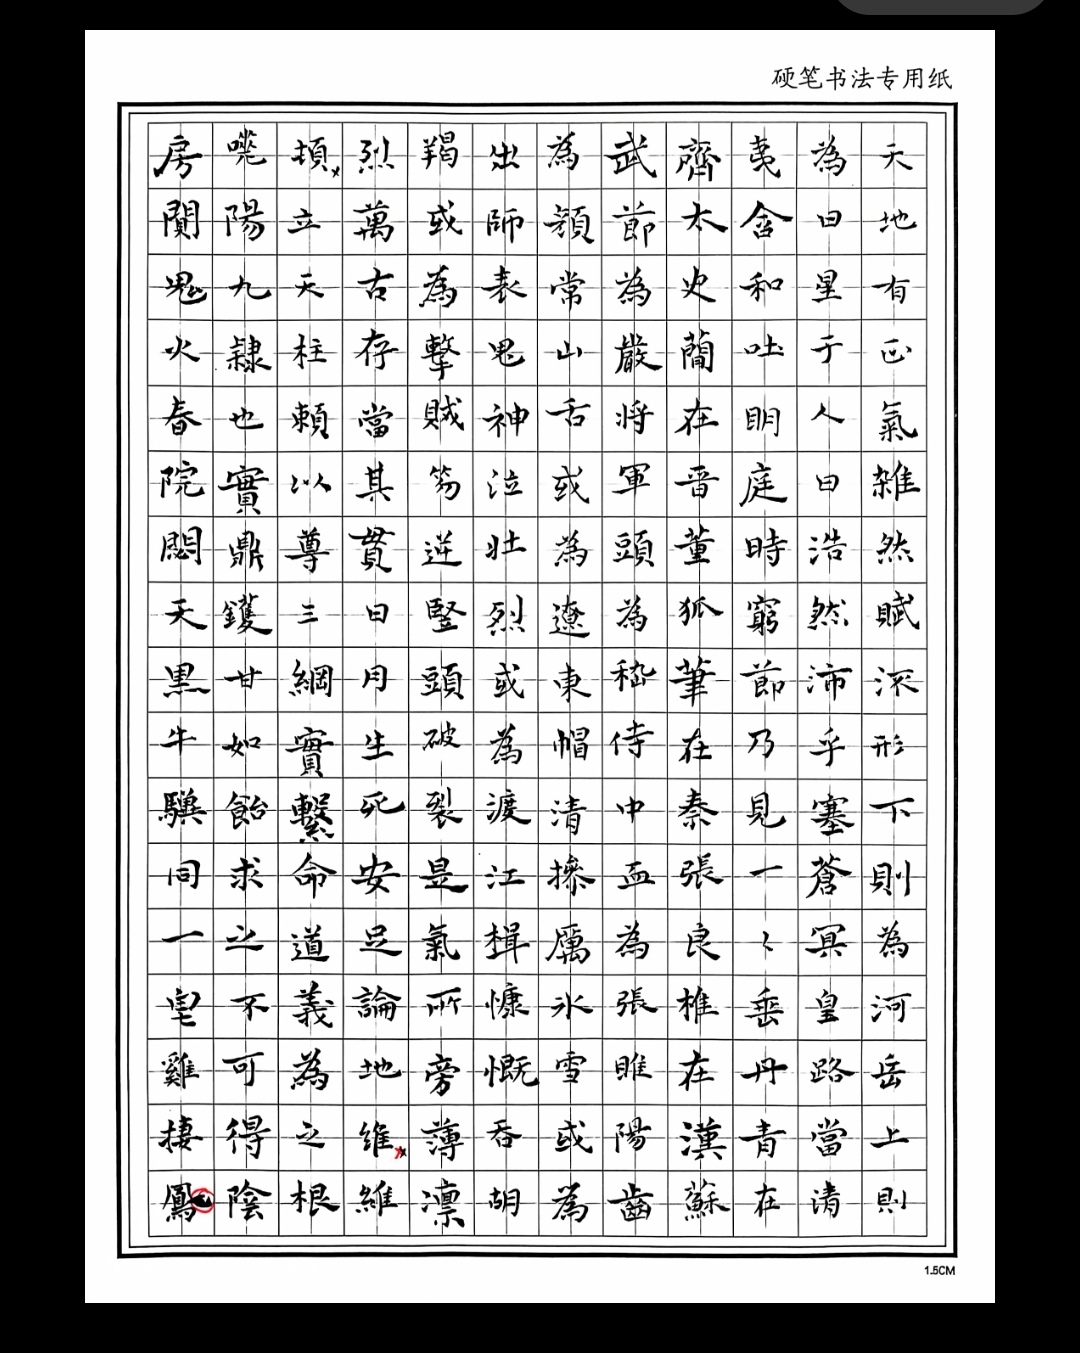 硬笔书法专用纸
天地有正氣雜然賦流形下則為河岳上則
為日星于人曰浩然沛乎塞蒼冥皇路當清
夷含和吐明庭時窮節乃見一〻垂丹青在
齊太史簡在晉董狐筆在秦張良椎在漢蘇
武節為嚴將軍頭為嵇侍中血為張睢陽齒
為顏常山舌或為遼東帽清操厲冰雪或為
出師表鬼神泣壯烈或為渡江楫慷慨吞胡
羯或為擊賊笏逆豎頭破裂是氣所旁薄凜
烈萬古存當其貫日月生死安足論地維維
頓立天柱賴以尊三綱實繫命道義為之根
嗟陽九隸也實鼎鑊甘如飴求之不可得陰
房闐鬼火春院閟天黑牛驥同一皂雞棲鳳
1.5CM